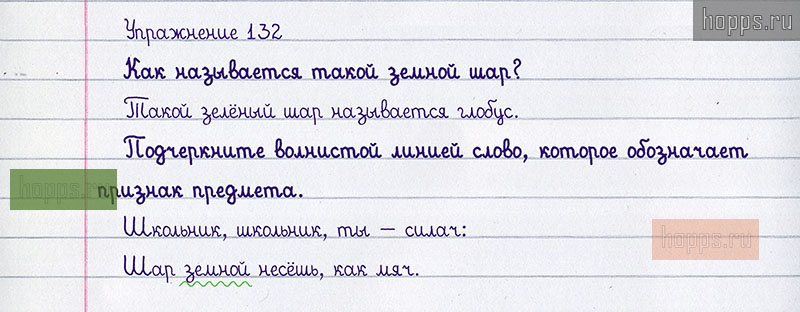 hopps.ru
Упражнение 132
Как называется такой земной шар?
Такой зелёный шар называется глобус.
Подчеркните волнистой линией слово, которое обозначает
hopps.ru
признак предмета.
Школьник, школьник, ты – силач:
hopps.ru
Шар земной несёшь, как мяч.